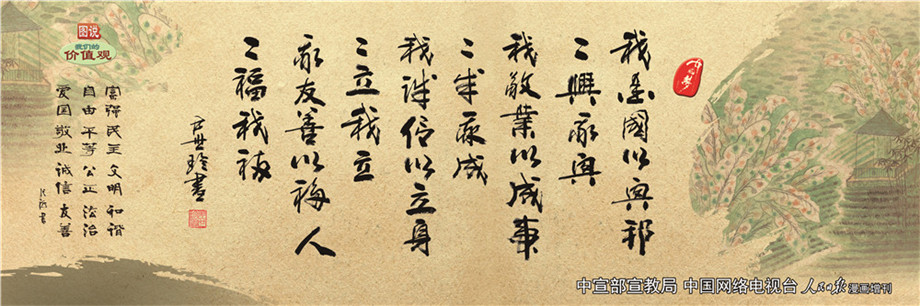 中国梦
我爱國以興邦
々興我興
我敬業以成事
々成我成
我诚信以立身
々立我立
我友善以福人
々福我福
世 書
图说
我们的
价值观
富强民主文明和谐
自由平等公正法治
爱国敬业诚信友善
中宣部宣教局 中国网络电视台 人民日报 漫画增刊